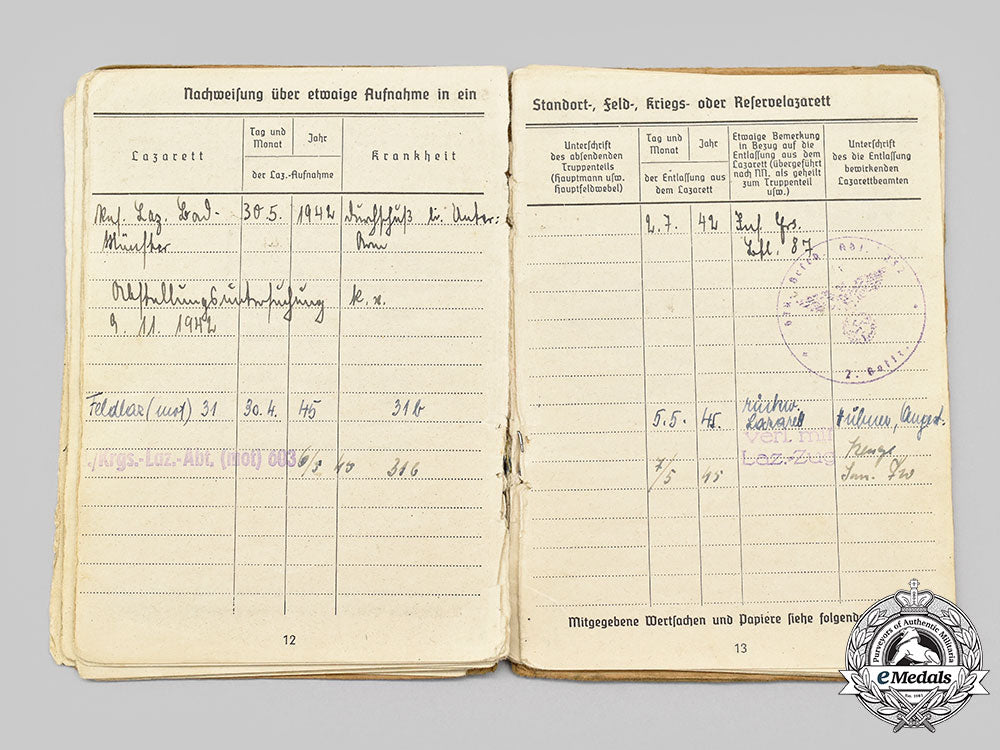 Nachweisung über etwaige Aufnahme in ein
Lazarett
Tag und Monat
Jahr
der Laz.-Aufnahme
Krankheit
Res. Laz. Bad- 30.5. 1942 Durchschuß li. Unter-
Münster Arm
Abstellungsuntersuchung k.v.
9. 11. 1942
Feldlaz (mot) 31 30.4. 45 31b
/Krgs.-Laz.-Abt. (mot) 603 6/5 45 31b
12
Standort-, Feld-, Kriegs- oder Reservelazarett
Unterschrift
des absendenden
Truppenteils
(Hauptmann usw.
Hauptfeldwebel)
Tag und Monat
Jahr
der Entlassung aus
dem Lazarett
Etwaige Bemerkung
in Bezug auf die
Entlassung aus dem
Lazarett (übergeführt
nach NN. als geheilt
zum Truppenteil
usw.)
Unterschrift
des die Entlassung
bewirkenden
Lazarettbeamten
2.7. 42 Inf. Ers.
Btl. 87
2. Battr.
5.5. 45. rückw.
Lazarett
verl. mit
Laz.-Zug
7/5 45
San. Fw
Mitgegebene Wertsachen und Papiere siehe folgend
13
Purveyors of Authentic Militaria
eMedals